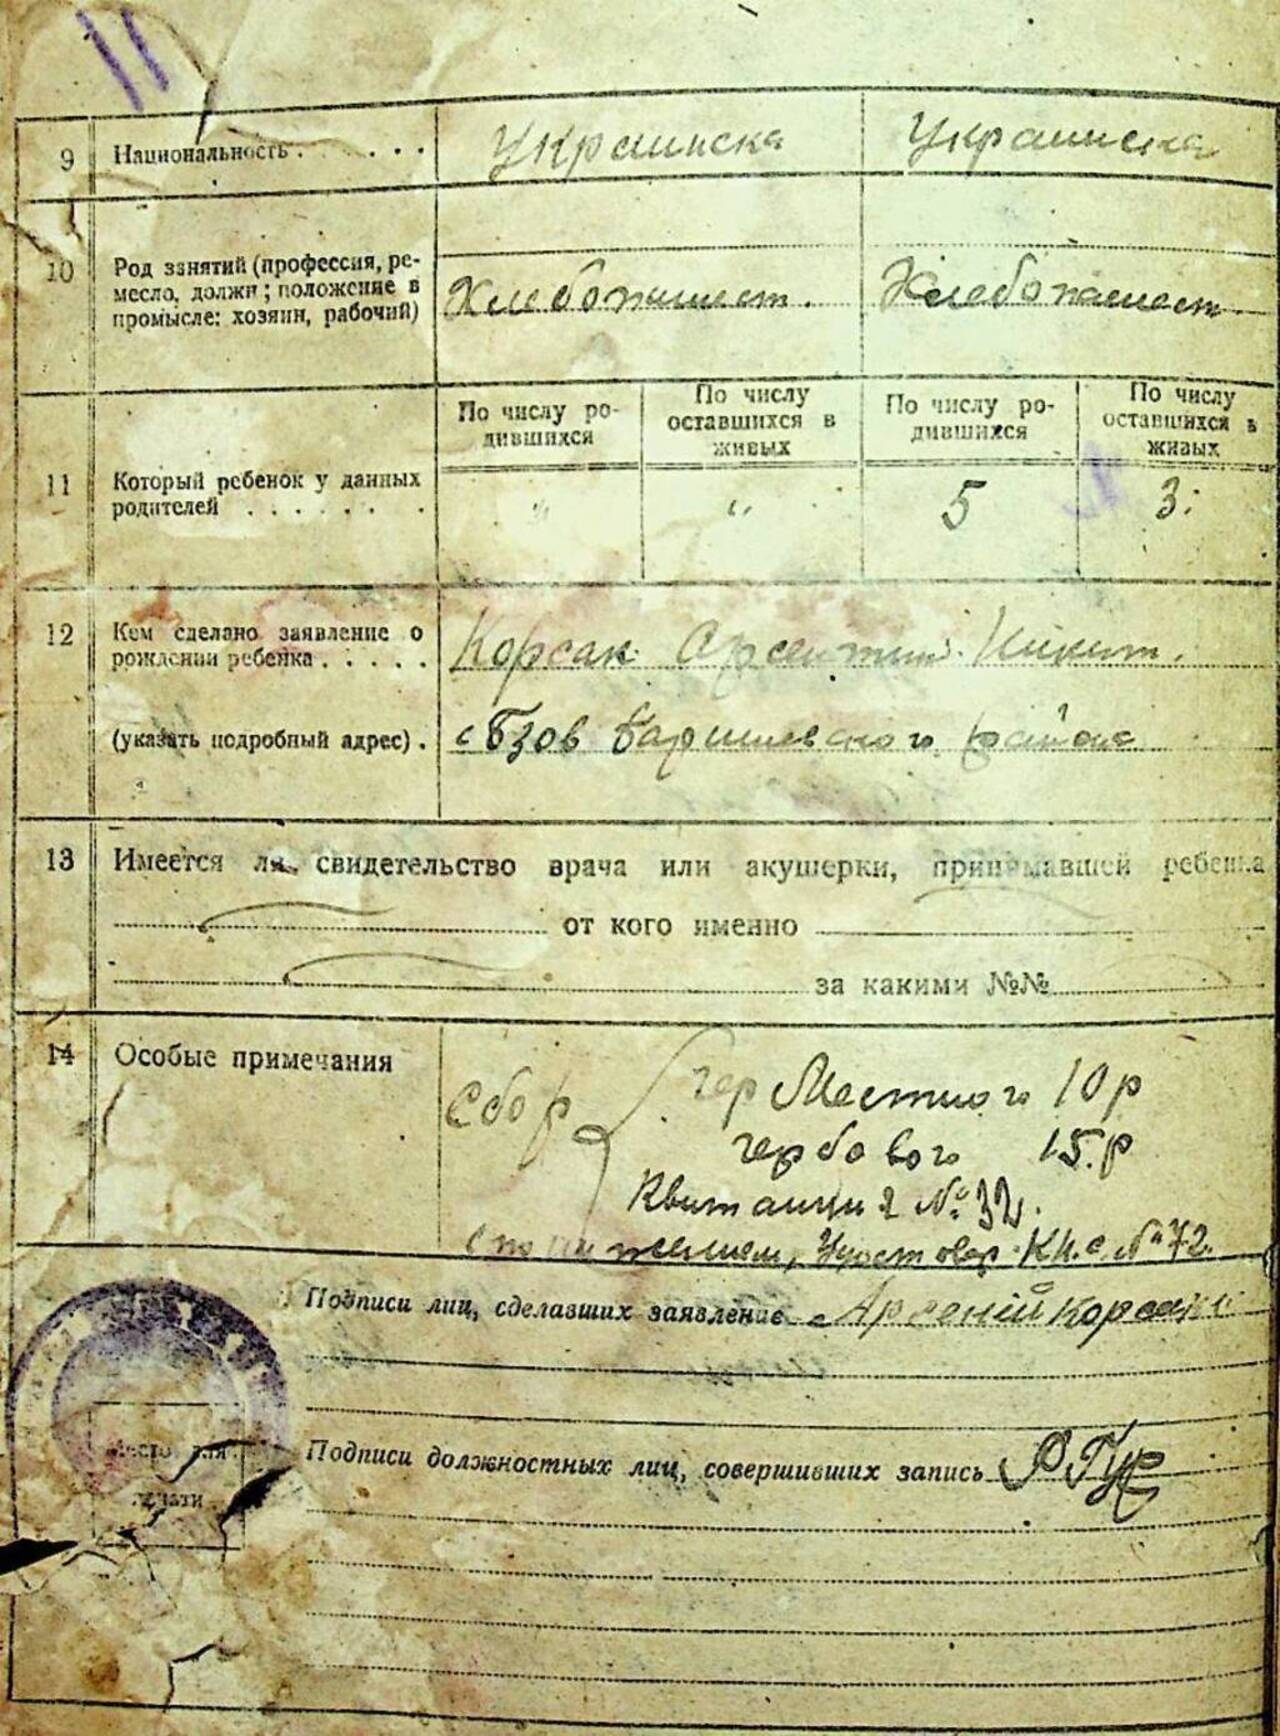 11
9 Национальность . . . . . . Украинска Украинска
10 Род занятий (профессия, ре-
месло, должн; положение в
промысле: хозяин, рабочий)
Хлебопашест. Хлебопашест.
По числу ро-
дившихся
По числу
оставшихся в
живых
По числу ро-
дившихся
По числу
оставшихся в
живых
11 Который ребенок у данных
родителей . . . . . . .
" " 5 3:
12 Кем сделано заявление о
рождении ребенка . . . . .
Корсак Арсентий Никит.
(указать подробный адрес) . с Бзов Баришевского района
13 Имеется ли свидетельство врача или акушерки, принимавшей ребенка
от кого именно
за какими №№
14 Особые примечания
Сбор гер Местного 10 р
гербового 15.р
Квитанция № 32.
Удостовер. К.н.с. № 72.
Подписи лиц, сделавших заявление Арсеній Корсак
Место для
печати
Подписи должностных лиц, совершивших запись